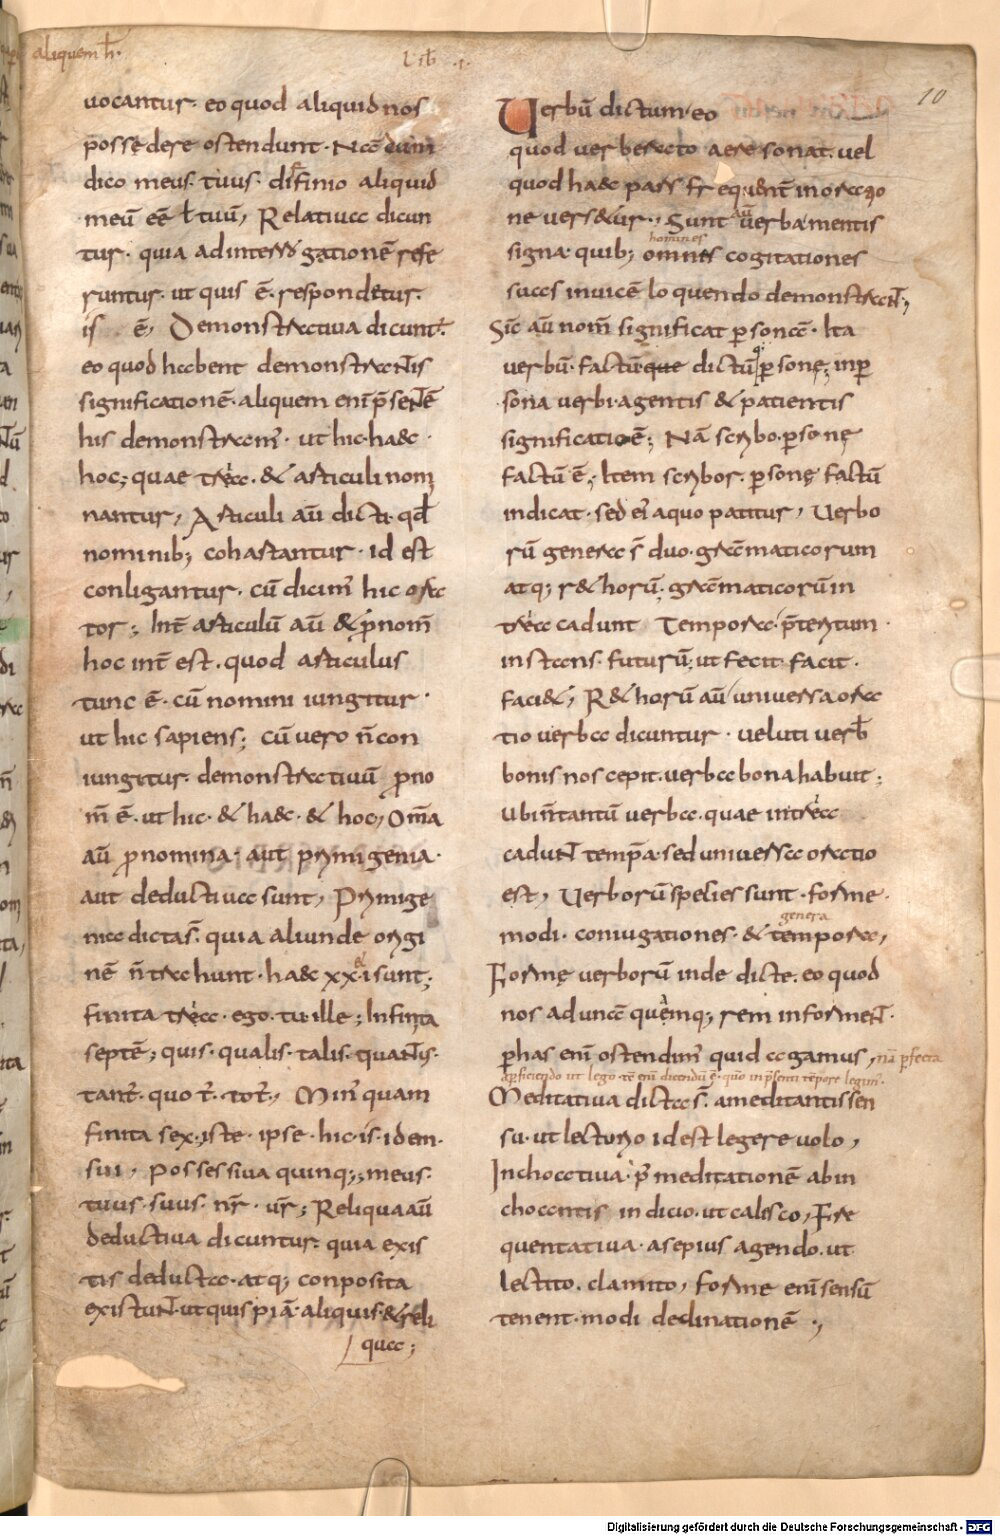 aliquem h̄.
Lib̄ .I.
10
uocantur. eo quod aliquid nos
possedere ostendunt. Nā dum
dico meus. tuus. diffinio aliquid
meū eē ł tuū, Relatiua dicun
tur. quia ad interrogationē refe
runtur. ut quis ē. respondetur.
is ē, Demonstratiua dicunt̄.
eo quod habent demonstrantis
significationē. aliquem enī p̄sentē
his demonstram̄. ut hic. haec.
hoc; quae tria. & articuli nom
nantur, Articuli aū dicti. qđ
nominib; cohartantur. id est
conligantur. cū dicim̄ hic ora
tor; Int̄ articulū aū & p̄nom̄
hoc int̄ est. quod articulus
tunc ē. cū nomini iungitur.
ut hic sapiens; cū uero n̄ con
iungitur. demonstratiuū prono
m̄ ē. ut hic. & haec. & hoc, Om̄a
aū pronomina. aut primigenia.
aut deductiua sunt, Primige
nia dicta s̄. quia aliunde origi
nē n̄ trahunt. haec xx.i sunt;
finita tria. ego. tu. ille; Infinita
septē; quis. qualis. talis. quantis.
tant̄. quot̄. tot̄, Min̄ quam
finita sex. iste. ipse. hic. is. idem.
sui, Possessiua quinq;; meus.
tuus. suus. nr̄. ur̄; Reliqua aū
deductiua dicuntur. quia exis
tis deducta. atq; conposita
existunt. ut quispiā. aliquis. & reli
qua;
Uerbū dictum. eo
quod uerberato aere sonat. uel
quod haec pars frequent̄ in oratio
ne uers&ur., Sunt aū uerba mentis
signa. quib; homines omnes cogitationes
suas inuicē loquendo demonstrant,
Sic̄ aū nom̄ significat personā. Ita
uerbū. factū que dictū q̣ personę; in per
sona uerbi. agentis & patientis
significatio ē; Nā scribo. personę
factū ē; Item scribor. personę factū
indicat. sed ei a quo patitur, Uerbo
rū genera s̄ duo. grāmaticorum
atq; r&horū; grāmaticorū in
tria cadunt Tempora. p̄teritum.
instans. futurū; ut fecit. facit.
faci&; R&horū aū uniuersa ora
tio uerba dicuntur. ueluti uerb̄
bonis nos cepit. uerba bona habuit;
Ubi n̄ tantū uerba. quae in tria
cadunt temp̄a. sed uniuersa oratio
est, Uerborū species sunt. forme.
genera
modi. coniugationes. & tempora,
Formę uerborū inde dicte. eo quod
nos ad unā quēmq; rem informent.
per has enī ostendim̄ quid agamus, nā p̄fecta
a perficiendo ut lego tē enī dicendū ē. quō in p̄senti tēpore legim̄.
Meditatiua dicta s̄. a meditantis sen
su. ut lecturio id est legere uolo,
Inchoatiua. p̄ meditationē ab in
choantis indicio. ut calesco, Fre
quentatiua. a sepius agendo. ut
lectito. clamito, forme enī sensū
tenent. modi declinationē .,
Digitalisierung gefördert durch die Deutsche Forschungsgemeinschaft - DFG